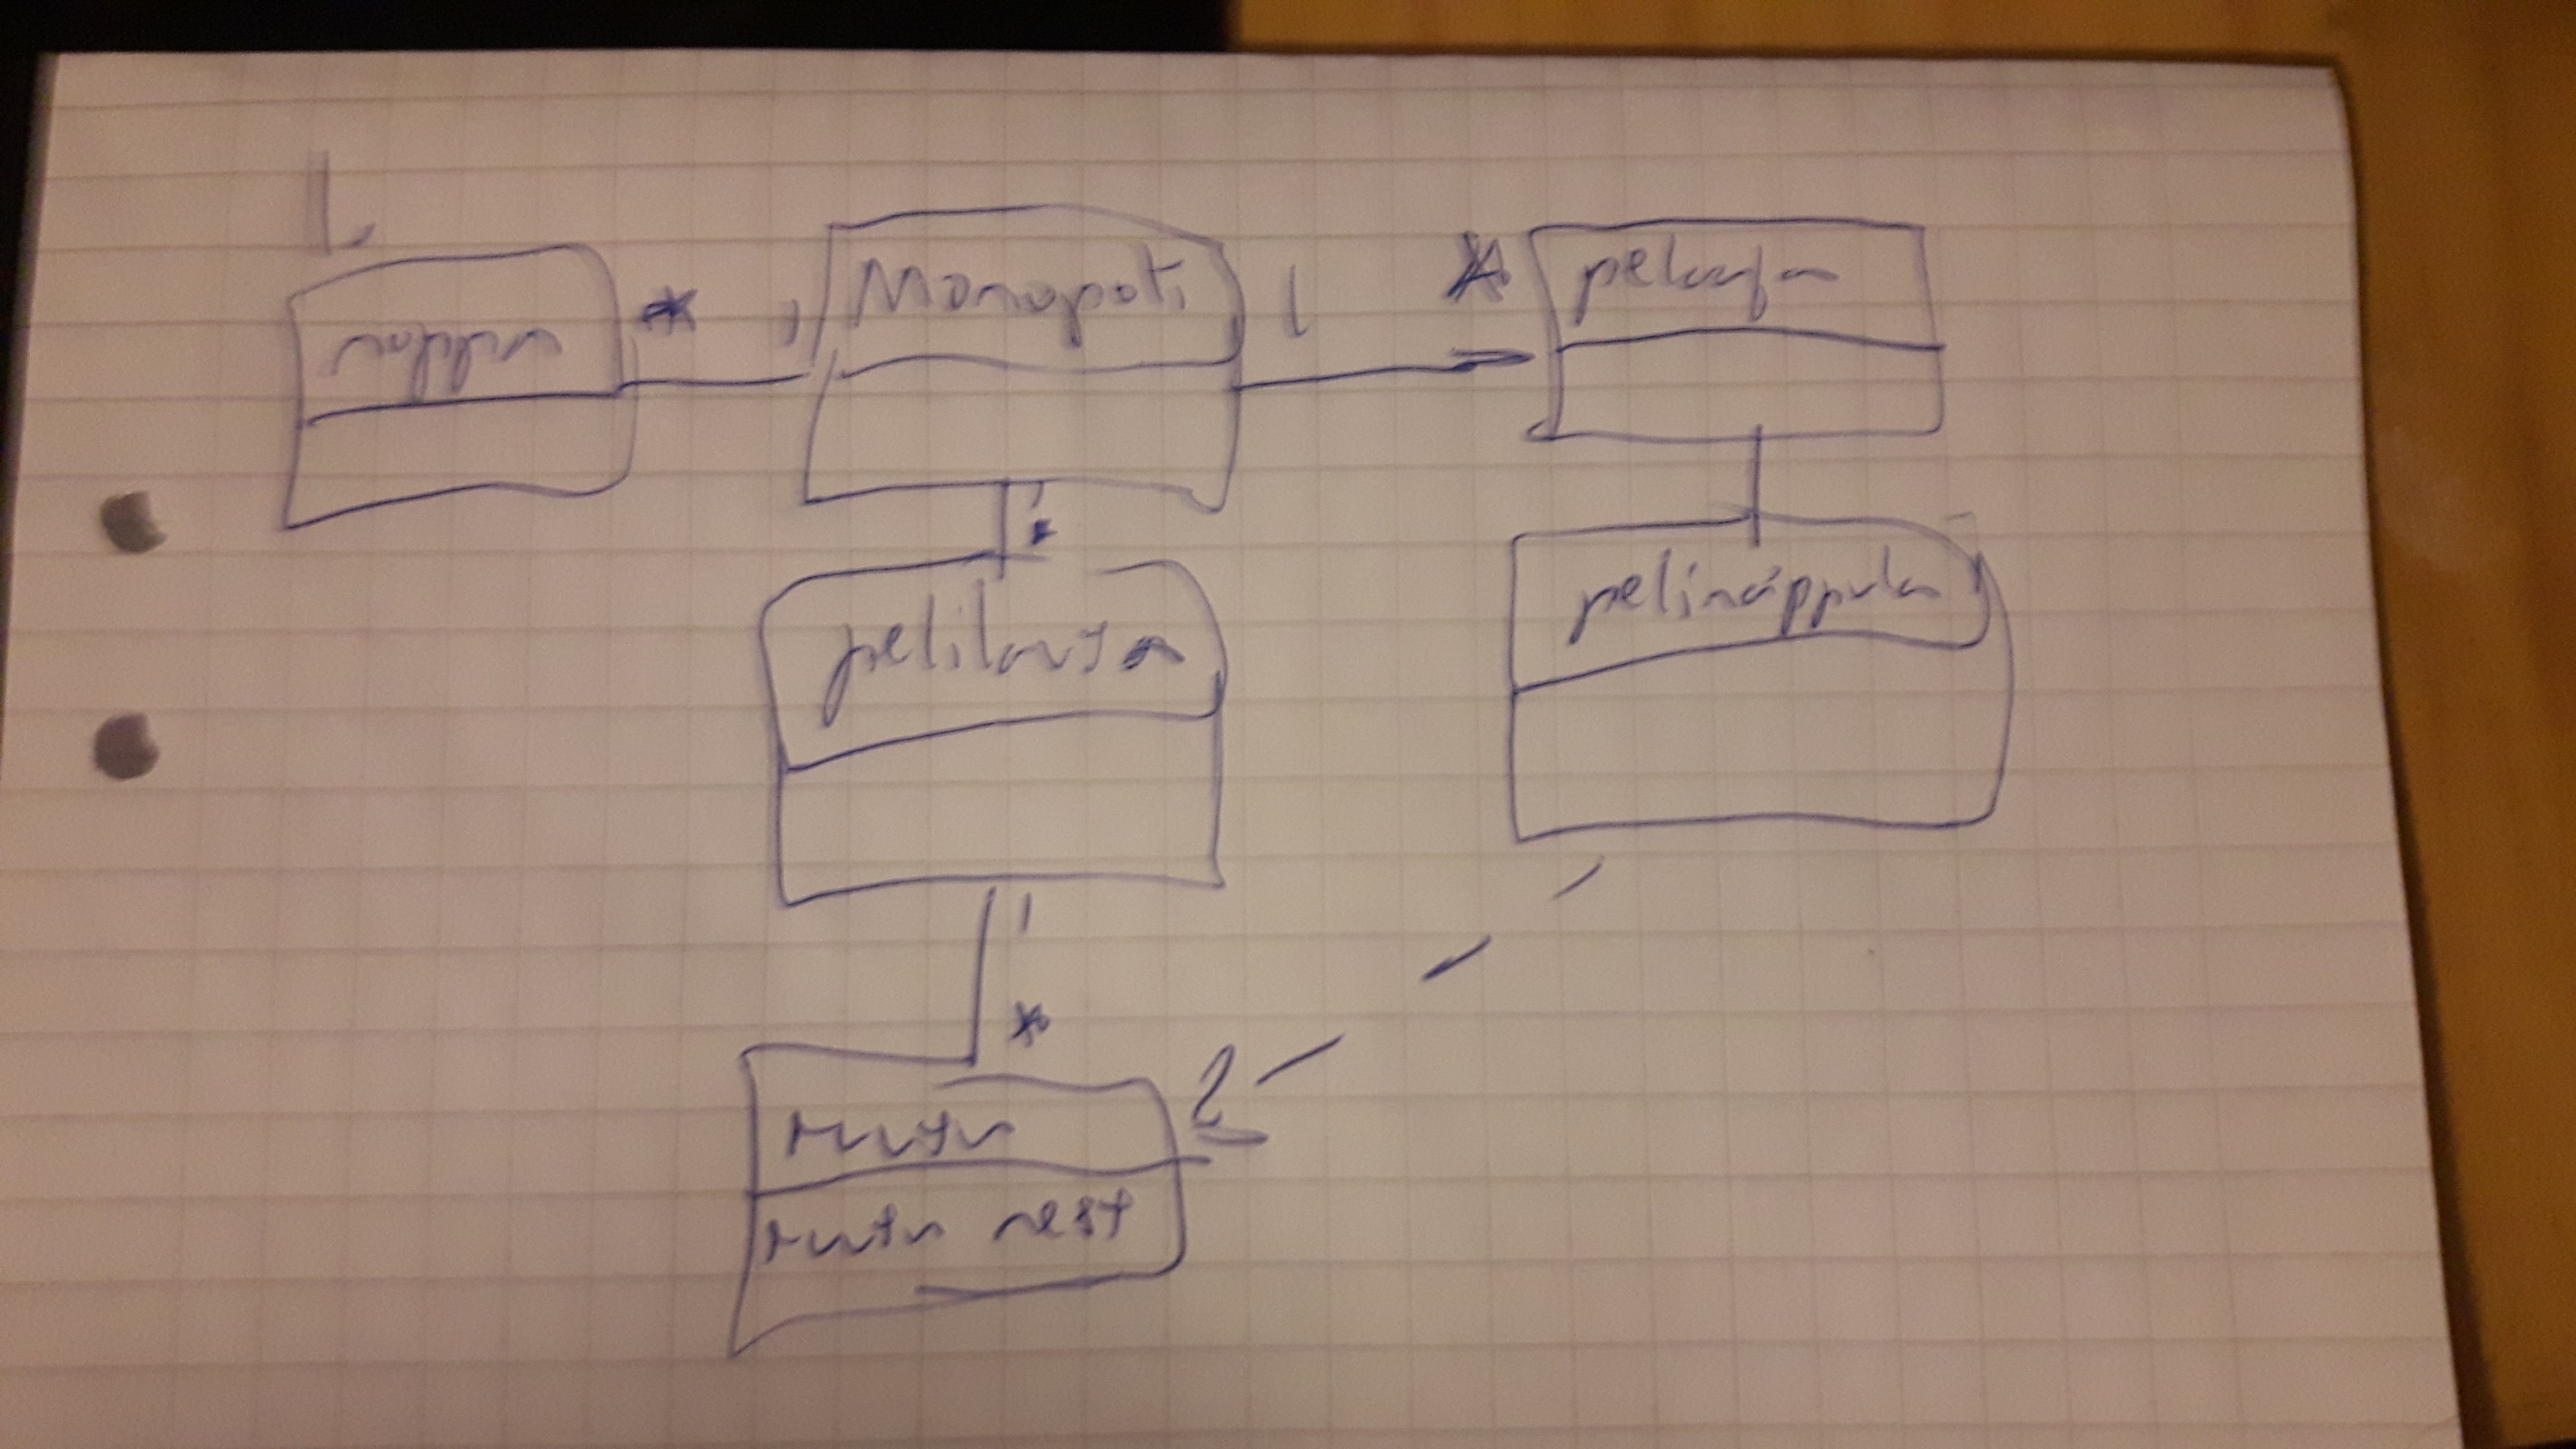 1.
noppa * 1 Monopoli 1 * pelaaja
1
*
pelilauta pelinappula
1
*
2
ruutu
ruutu next